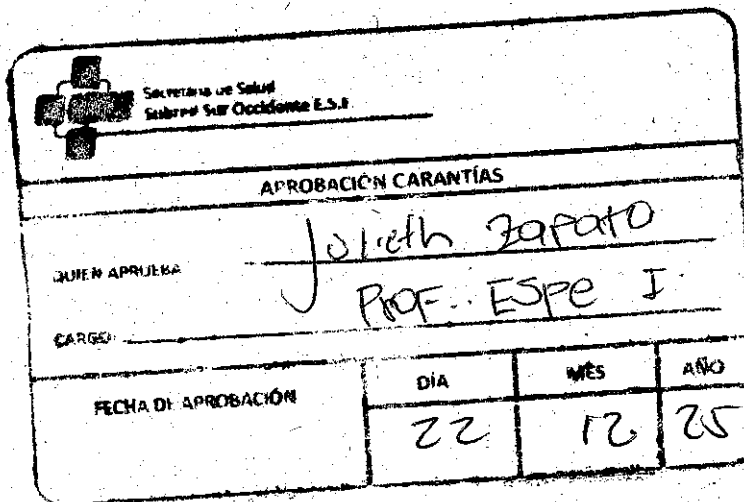 Secretaría de Salud
Subred Sur Occidente E.S.E.
APROBACIÓN CARANTÍAS
QUIEN APRUEBA Julieth Zapata
CARGO: Prof. Espe I.
FECHA DE APROBACIÓN
DÍA MES AÑO
22 12 25